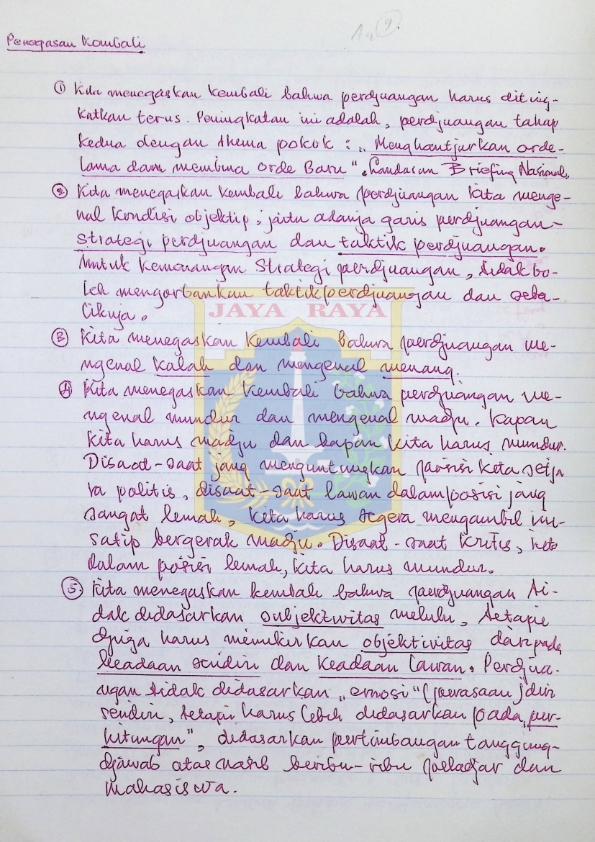 9
Penegasan Kembali
① Kita menegaskan kembali bahwa perdjuangan harus diting-
katkan terus. Peningkatan ini adalah, perdjuangan tahap
kedua dengan thema pokok: „Menghantjurkan orde-
lama dan membina orde Baru". Landasan Briefing Nasional.
② Kita menegaskan kembali bahwa perdjuangan kita menge-
nal kondisi objektip, jaitu adanja garis perdjuangan-
strategi perdjuangan dan taktik perdjuangan.
Untuk kemenangan strategi perdjuangan, tidak bo-
leh mengorbankan taktik perdjuangan dan seba-
liknja.
JAYA RAYA
③ Kita menegaskan kembali bahwa perdjuangan me-
ngenal kalah dan mengenal menang.
④ Kita menegaskan kembali bahwa perdjuangan me-
ngenal mundur dan mengenal madju. Kapan
kita harus madju dan kapan kita harus mundur.
Disaat-saat jang menguntungkan posisi kita setja-
ra politis, disaat-saat lawan dalam posisi jang
sangat lemah, kita harus segera mengambil ini-
satip bergerak madju. Disaat-saat kritis, kita
dalam posisi lemah, kita harus mundur.
⑤ Kita menegaskan kembali bahwa perdjuangan ti-
dak didasarkan subjektivitas melulu, tetapi
djuga harus memikirkan objektivitas daripada
keadaan sendiri dan keadaan lawan. Perdjua-
ngan tidak didasarkan „emosi" (perasaan) diri
sendiri, tetapi harus lebih didasarkan pada „per-
hitungan", didasarkan pertimbangan tanggung-
djawab atas nasib beribu-ribu peladjar dan
mahasiswa.